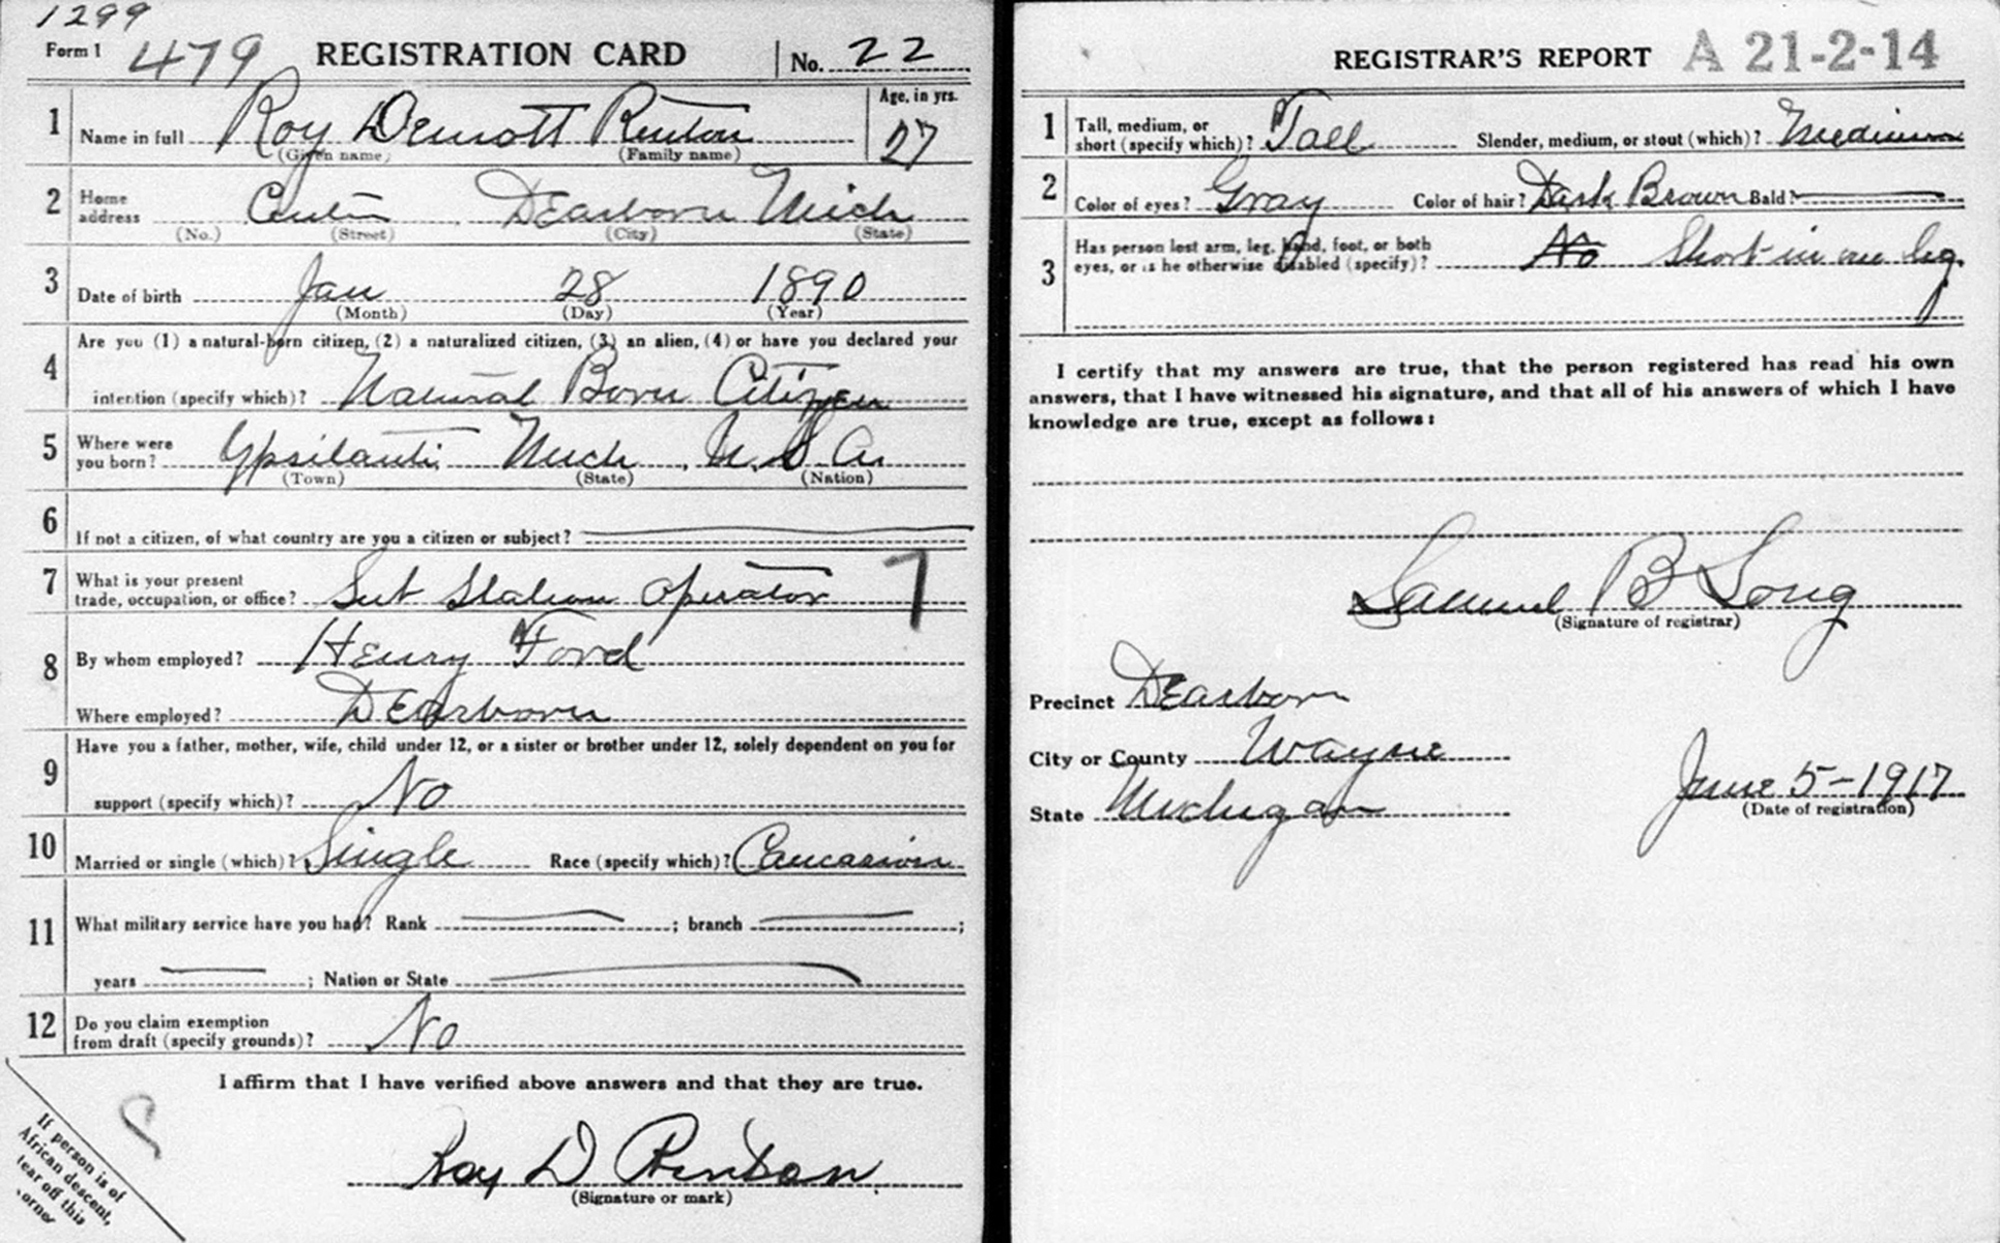 1299
Form 1 479 REGISTRATION CARD No. 22
1 Name in full Roy Demott Renton Age, in yrs. 27
(Given name) (Family name)
2 Home address Dearborn Mich
(No.) (Street) (City) (State)
3 Date of birth Jan 28 1890
(Month) (Day) (Year)
4 Are you (1) a natural-born citizen, (2) a naturalized citizen, (3) an alien, (4) or have you declared your
intention (specify which)? Natural Born Citizen
5 Where were you born? Ypsilanti Mich U.S.A.
(Town) (State) (Nation)
6 If not a citizen, of what country are you a citizen or subject?
7 What is your present
trade, occupation, or office? Sub Station Operator 7
8 By whom employed? Henry Ford
Where employed? Dearborn
9 Have you a father, mother, wife, child under 12, or a sister or brother under 12, solely dependent on you for
support (specify which)? No
10 Married or single (which)? Single Race (specify which)? Caucasian
11 What military service have you had? Rank ; branch ;
years ; Nation or State
12 Do you claim exemption
from draft (specify grounds)? No
I affirm that I have verified above answers and that they are true.
Roy D Renton
(Signature or mark)
If person is of
African descent,
tear off this
corner
REGISTRAR'S REPORT A 21-2-14
1 Tall, medium, or
short (specify which)? Tall Slender, medium, or stout (which)? Medium
2 Color of eyes? Gray Color of hair? Dark Brown Bald?
3 Has person lost arm, leg, hand, foot, or both
eyes, or is he otherwise disabled (specify)? No Short in one leg
I certify that my answers are true, that the person registered has read his own
answers, that I have witnessed his signature, and that all of his answers of which I have
knowledge are true, except as follows:
Samuel B Long
(Signature of registrar)
Precinct Dearborn
City or County Wayne
State Michigan June 5-1917
(Date of registration)